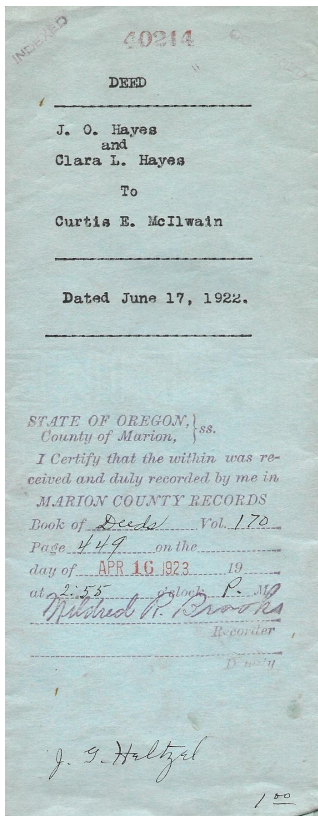 INDEXED
40214
DEED
J. O. Hayes
and
Clara L. Hayes
To
Curtis E. McIlwain
Dated June 17, 1922.
STATE OF OREGON,
County of Marion, } ss.
I Certify that the within was re-
ceived and duly recorded by me in
MARION COUNTY RECORDS
Book of Deeds Vol. 170
Page 449 on the
day of APR 16 1923 19
at 2:55 o'clock P. M
Mildred R. Brooks
Recorder
Deputy
J. G. Heltzel
1 00